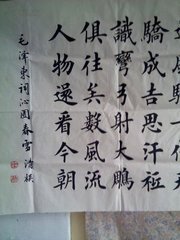 驕成吉思汗祗
識彎弓射大鵰
俱往矣數風流
人物還看今朝
毛澤東詞沁園春雪